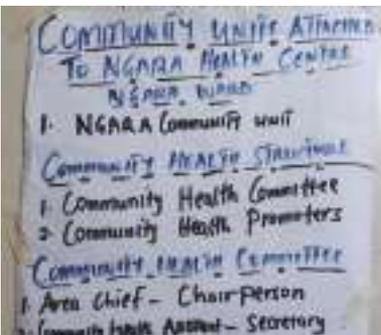 COMMUNITY UNITS ATTACHED
TO NGARA HEALTH CENTRE
NGARA WARD
1. NGARA Community unit
COMMUNITY HEALTH STRUCTURE
1. Community Health Committee
2. Community Health Promoters
COMMUNITY HEALTH COMMITTEE
1. Area Chief - Chairperson
2. Community Health Assistant - Secretary